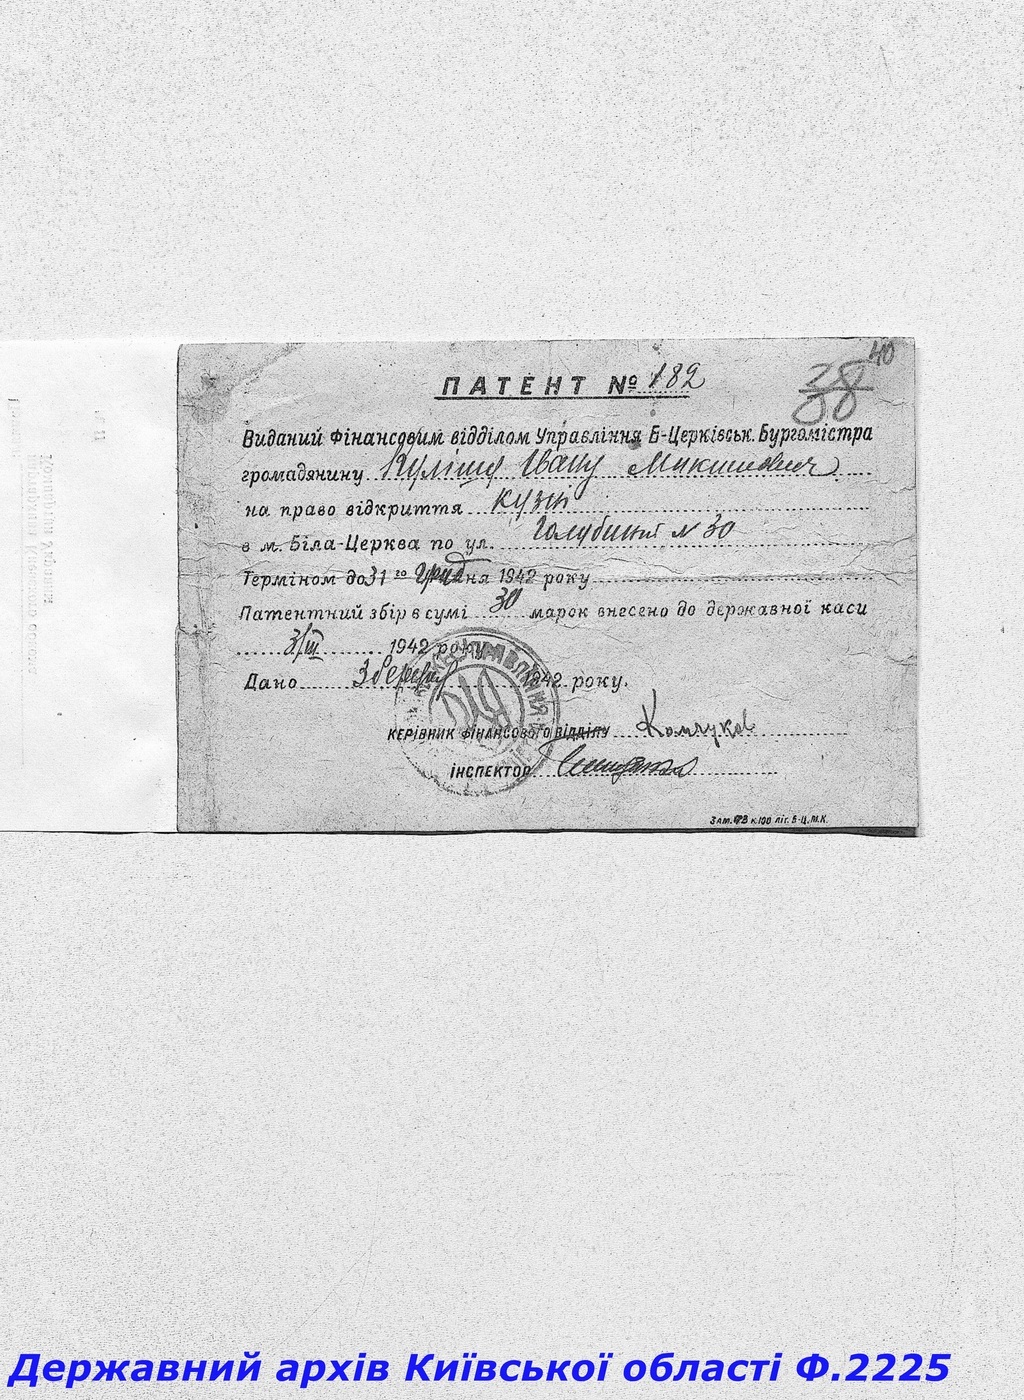 40
38
ПАТЕНТ № 182
Виданий Фінансовим відділом Управління Б-Церківськ. Бургомістра
громадянину Кулішу Івану
на право відкриття кузні
в м. Біла-Церква по ул. N 30
Терміном до 31 го Грудня 1942 року
Патентний збір в сумі 30 марок внесено до державної каси
3/III 1942 року
Дано 3 березня 1942 року.
КЕРІВНИК ФІНАНСОВОГО ВІДДІЛУ
ІНСПЕКТОР
Зам. 73 к.100 літ. Б-Ц.М.К.
Державний архів Київської області Ф.2225